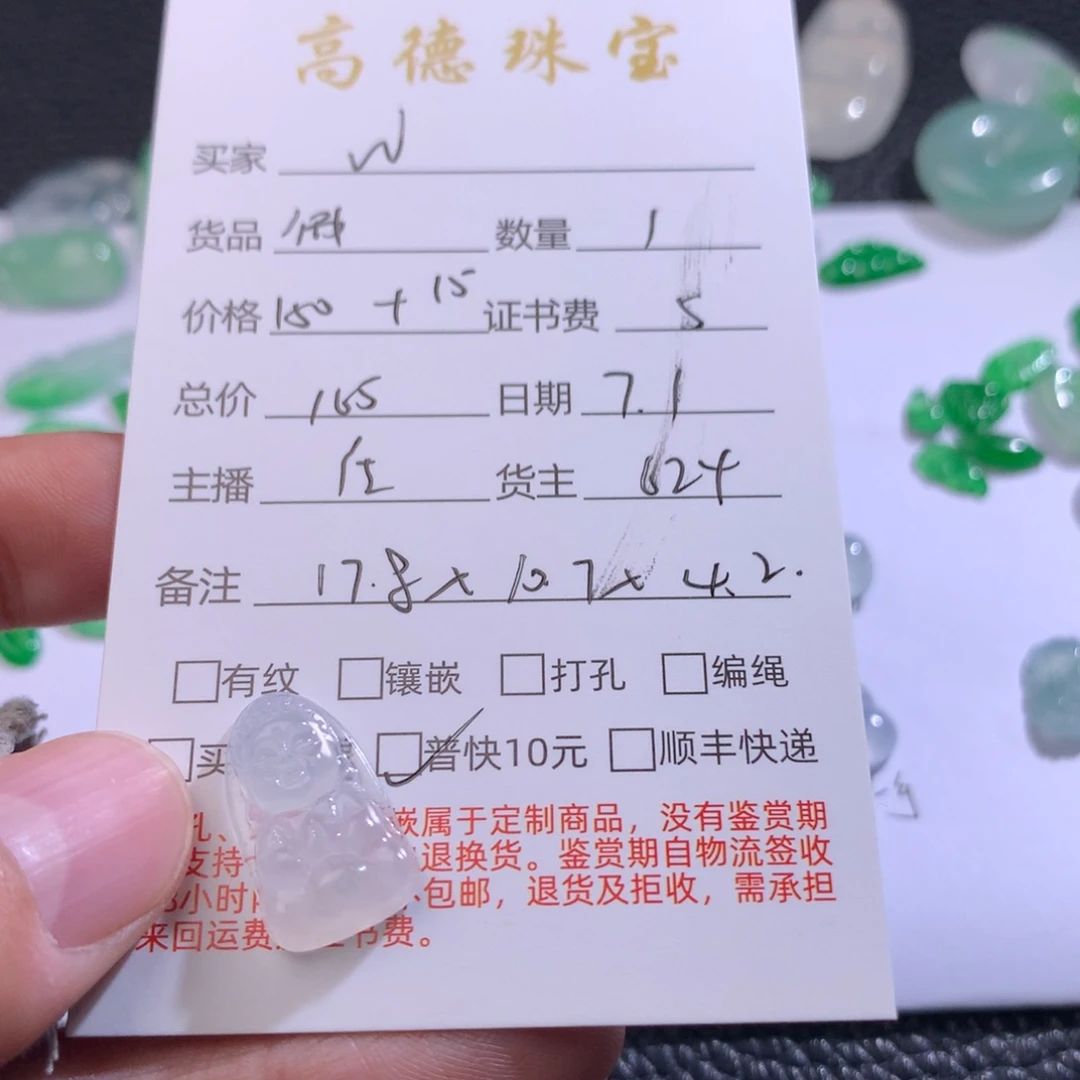 高德珠宝
买家 W
货品 佛 数量 1
价格 150 + 15 证书费 5
总价 165 日期 7.1
主播 任 货主 624
备注 17.8 x 10.7 x 4.2.
有纹 镶嵌 打孔 编绳
买 普快10元 顺丰快递
孔、 嵌属于定制商品，没有鉴赏期
支持 退换货。鉴赏期自物流签收
小时 包邮，退货及拒收，需承担
来回运费 书费。